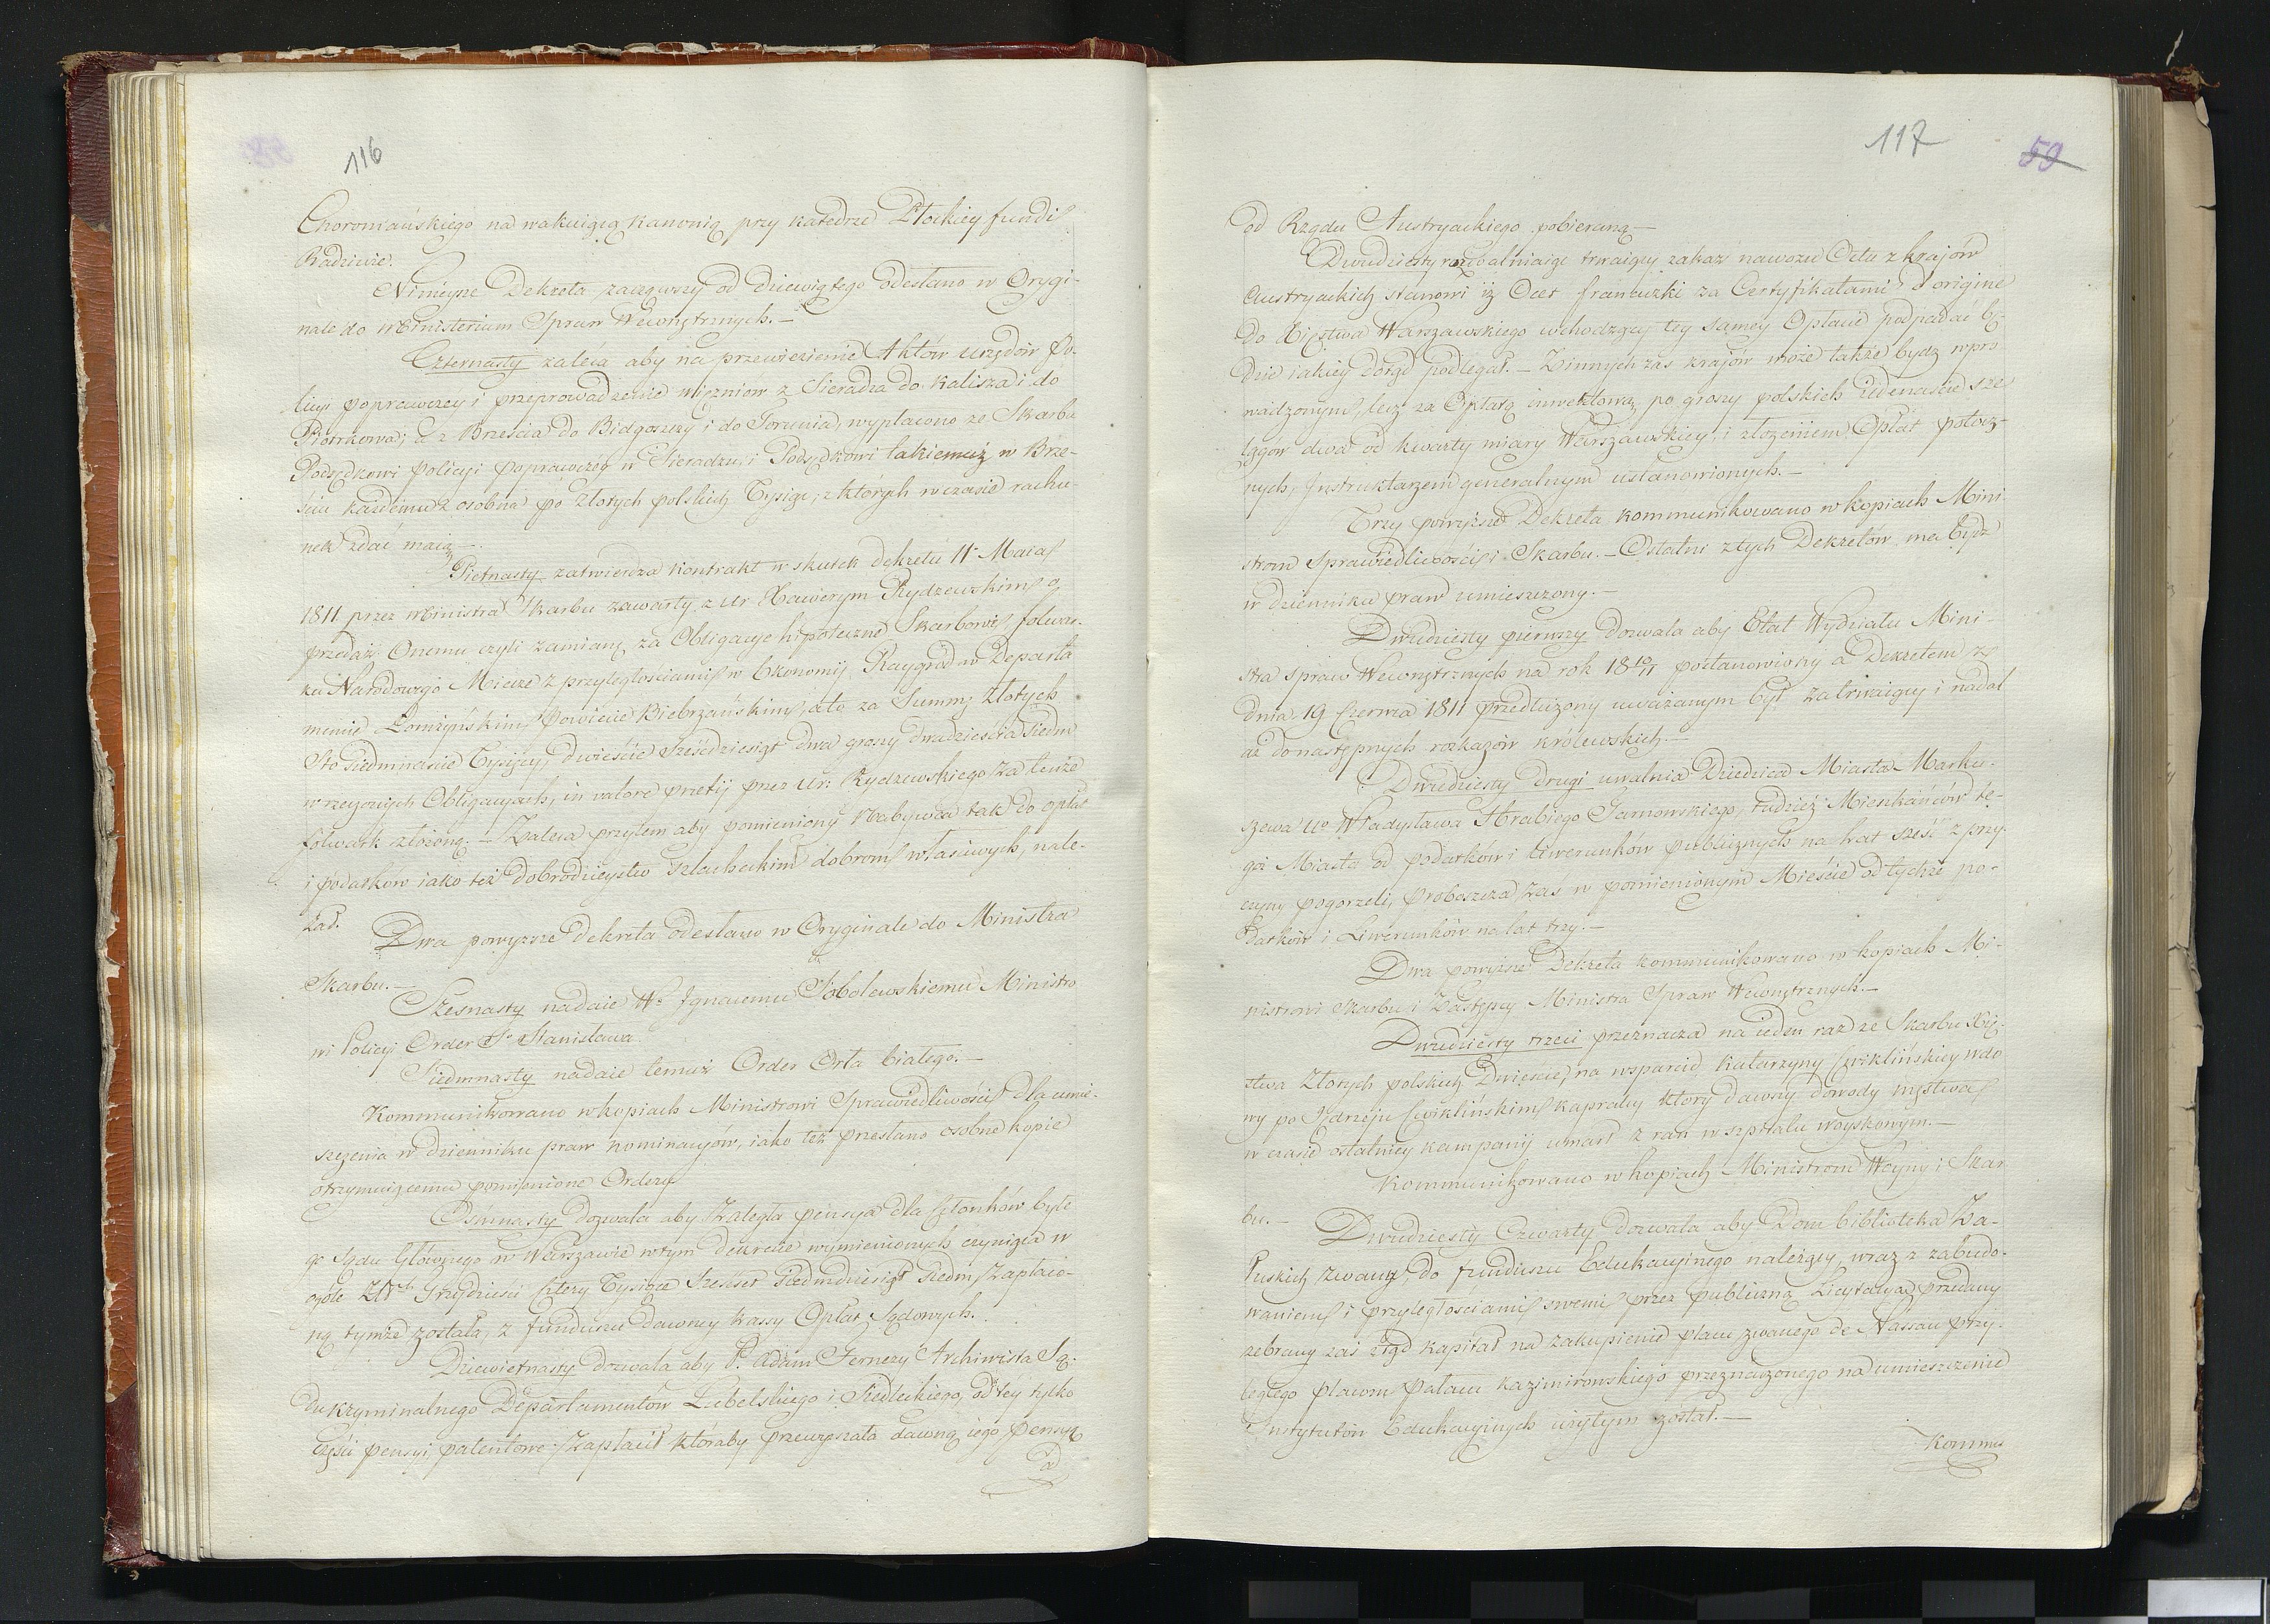 116
Choromańskiego na wakuiącą kanonią przy katedrze Płockiey fundi
Radziwie.
Ninieysze Dekreta zacząwszy od dziewiątego odesłano w Orygi-
nale do Ministerium Spraw Wewnętrznych.–
Czternasty zaleca aby na przewiezienie Aktów urzędów Po-
licyi poprawczey i przeprowadzenie więzniów z Sieradza do Kalisza i do
Piotrkowa, a z Brzescia do Bidgoszczy i do Torunia, wypłacono ze Skarbu
Podsędkowi Policyi poprawczéy w Sieradzu, i Podsędkowi takiemuż w Brze-
ściu każdemu z osobna po złotych polskich Tysiąc, z których w czasie rachu-
nek zdać maią.–
Pietnasty zatwierdza kontrakt w skutek dekretu 11 Maia
1811 przez Ministra Skarbu zawarty z Ur Xawerym Rydzewskim o
przedaż Onemu czyli zamianę za Obligacye hipoteczne Skarbowe, folwar-
ku Narodowego Miecze z przyległościami w Ekonomij Raygród w Departa
mencie Łomżyńskim Powiecie Biebrzańskim, a to za Summę Złotych
Sto siedmnaście Tysięcy, dwieście sześćdziesiąt dwa groszy dwadzieścia siedm
w rzeczonych Obligacyach, in valore pretij przez Ur: Rydzewskiego za tenże
folwark złożoną.– Zaleca przytem aby pomieniony Nabywca tak do opłat
i podatków iako też dobrodzieystw szlacheckim dobrom właściwych, nale-
żał.
Dwa powyższe Dekreta odesłano w Oryginale do Ministra
Skarbu.–
Szesnasty nadaie Wº Ignacemu Sobolewskiemu Ministro
wi Policyi Order Sº Stanisława.
Siedmnasty nadaie temuż Order Orła białego.–
Kommunikowano w kopiach Ministrowi Sprawiedliwości dla umie-
szczenia w dzienniku praw nominacyów, iako też przesłano osobne kopie
otrzymuiącemu pomienione Ordery
Ośmnasty dozwala aby zaległa pensya dla Członków byłe
go Sądu Głównego w Warszawie w tym dekrecie wymienionych czyniąca w
ogóle Złch Trzydzieści cztery Tysiące Sześset siedmdziesiąt siedm, zapłaco-
ną tymże została, z funduszu dawney kassy Opłat Sądowych.
Dziewietnasty dozwala aby P. Adam Ternezy Archiwista Są-
du kryminalnego Departamentów Lubelskiego i Siedleckiego, od tey tylko
części pensyi, patentowe zapłacił któraby przewyszała dawną iego pensyą
od
117
59
od Rządu Austryackiego pobieraną–
Dwudziesty uchwalniaiąc trwaiący zakaz nawozu Octu z krajów
Austryackich stanowi iż Ocet francuzki za Certyfikatami d'origine
do Xięstwa Warszawskiego wchodzący tey samey Opłacie podpadać bę-
dzie iakiey dotąd podlegał.– Z innych zaś krajów może także bydz wpro
wadzonym, lecz za Opłatą inwektową po groszy polskich iedenaście sze
lągów dwa od kwarty miary Warszawskiey, i złożeniem Opłat potocz-
nych, Instruktarzem generalnym ustanowionych.–
Trzy powyższe Dekreta kommunikowano w kopiach Mini
strom Sprawiedliwości i Skarbu.– Ostatni z tych Dekretów ma bydź
w dzienniku praw umieszczony.–
Dwudziesty pierwszy dozwala aby Etat Wydziału Mini-
stra spraw Wewnętrznych na rok 18 10/11 postanowiony a Dekretem z
dnia 19 Czerwca 1811 przedłużony uważanym był za trwaiący i nadal
aż do następnych rozkazów królewskich.–
Dwudziesty drugi uwalnia Dziedzica Miasta Marku-
szewa Uº Władysława Hrabiego Tarnowskiego, tudzież Mieszkańców te-
goż Miasta od podatków i liwerunków publicznych na lat sześć z przy-
czyny pogorzeli, Proboszcza zaś w pomienionym Mieście od tychże po-
datków i Liwerunków na lat trzy.–
Dwa powyższe Dekreta kommunikowano w kopiach Mi-
nistrowi Skarbu i Zastępcy Ministra Spraw Wewnętrznych.–
Dwudziesty trzeci przeznacza na ieden raz ze Skarbu Xię-
stwa Złotych polskich Dwieście, na wsparcie Katarzyny Cwiklińskiey wdo
wy po Jędrzeju Cwiklińskim kapralu który dawszy dowody męstwa
w czasie ostatniey kampanij umarł z ran w szpitalu woyskowym.–
Kommunikowano w kopiach Ministrom Woyny i Skar
bu.–
Dwudziesty Czwarty dozwala aby Dom biblioteka Za-
łuskich zwany, do funduszu Edukacyinego należący, wraz z zabudo-
waniem i przyległościami swemi przez publiczną Licytacyą przedany
zebrany zaś ztąd kapitał na zakupienie placu zwanego de Nassau przy-
ległego placom Pałacu Kazimirowskiego przeznaczonego na umieszczenie
Instytutów Edukacyinych użytym został.–
Kommu